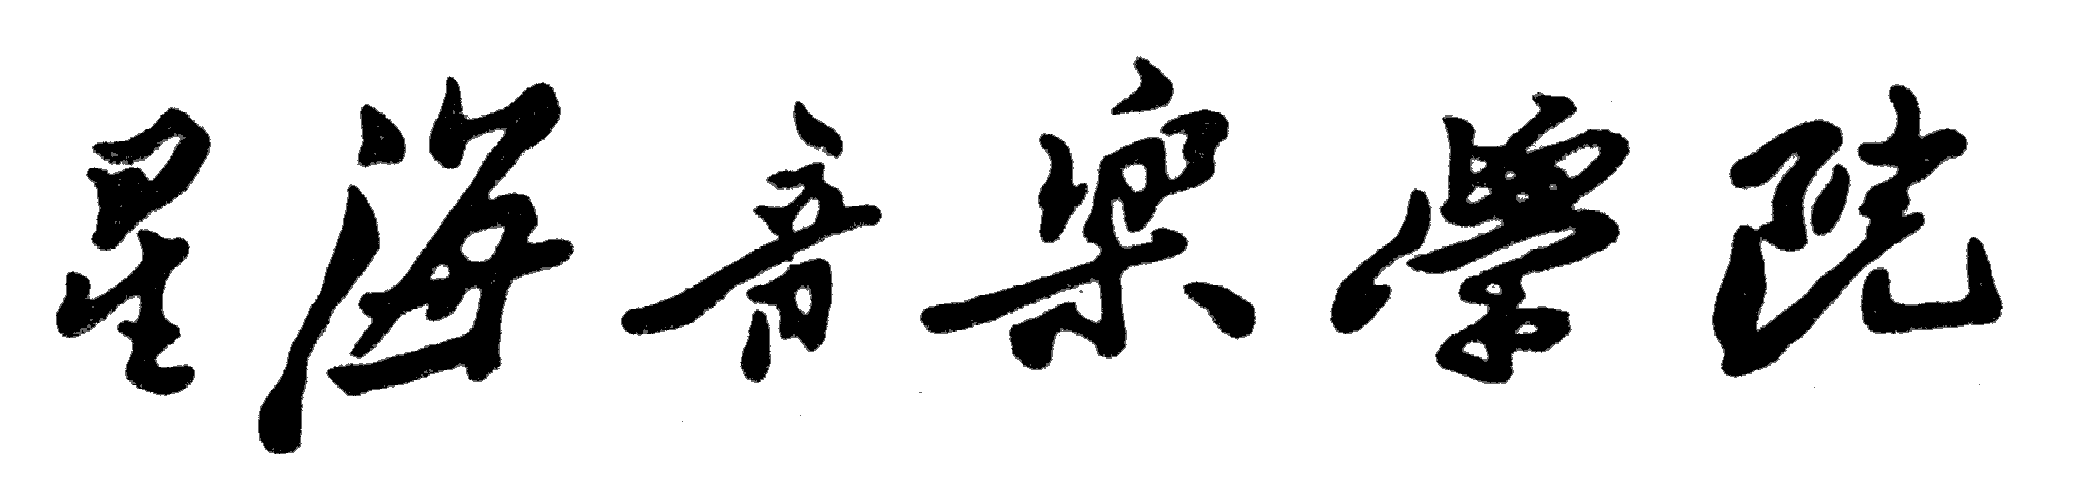 星海音樂學院